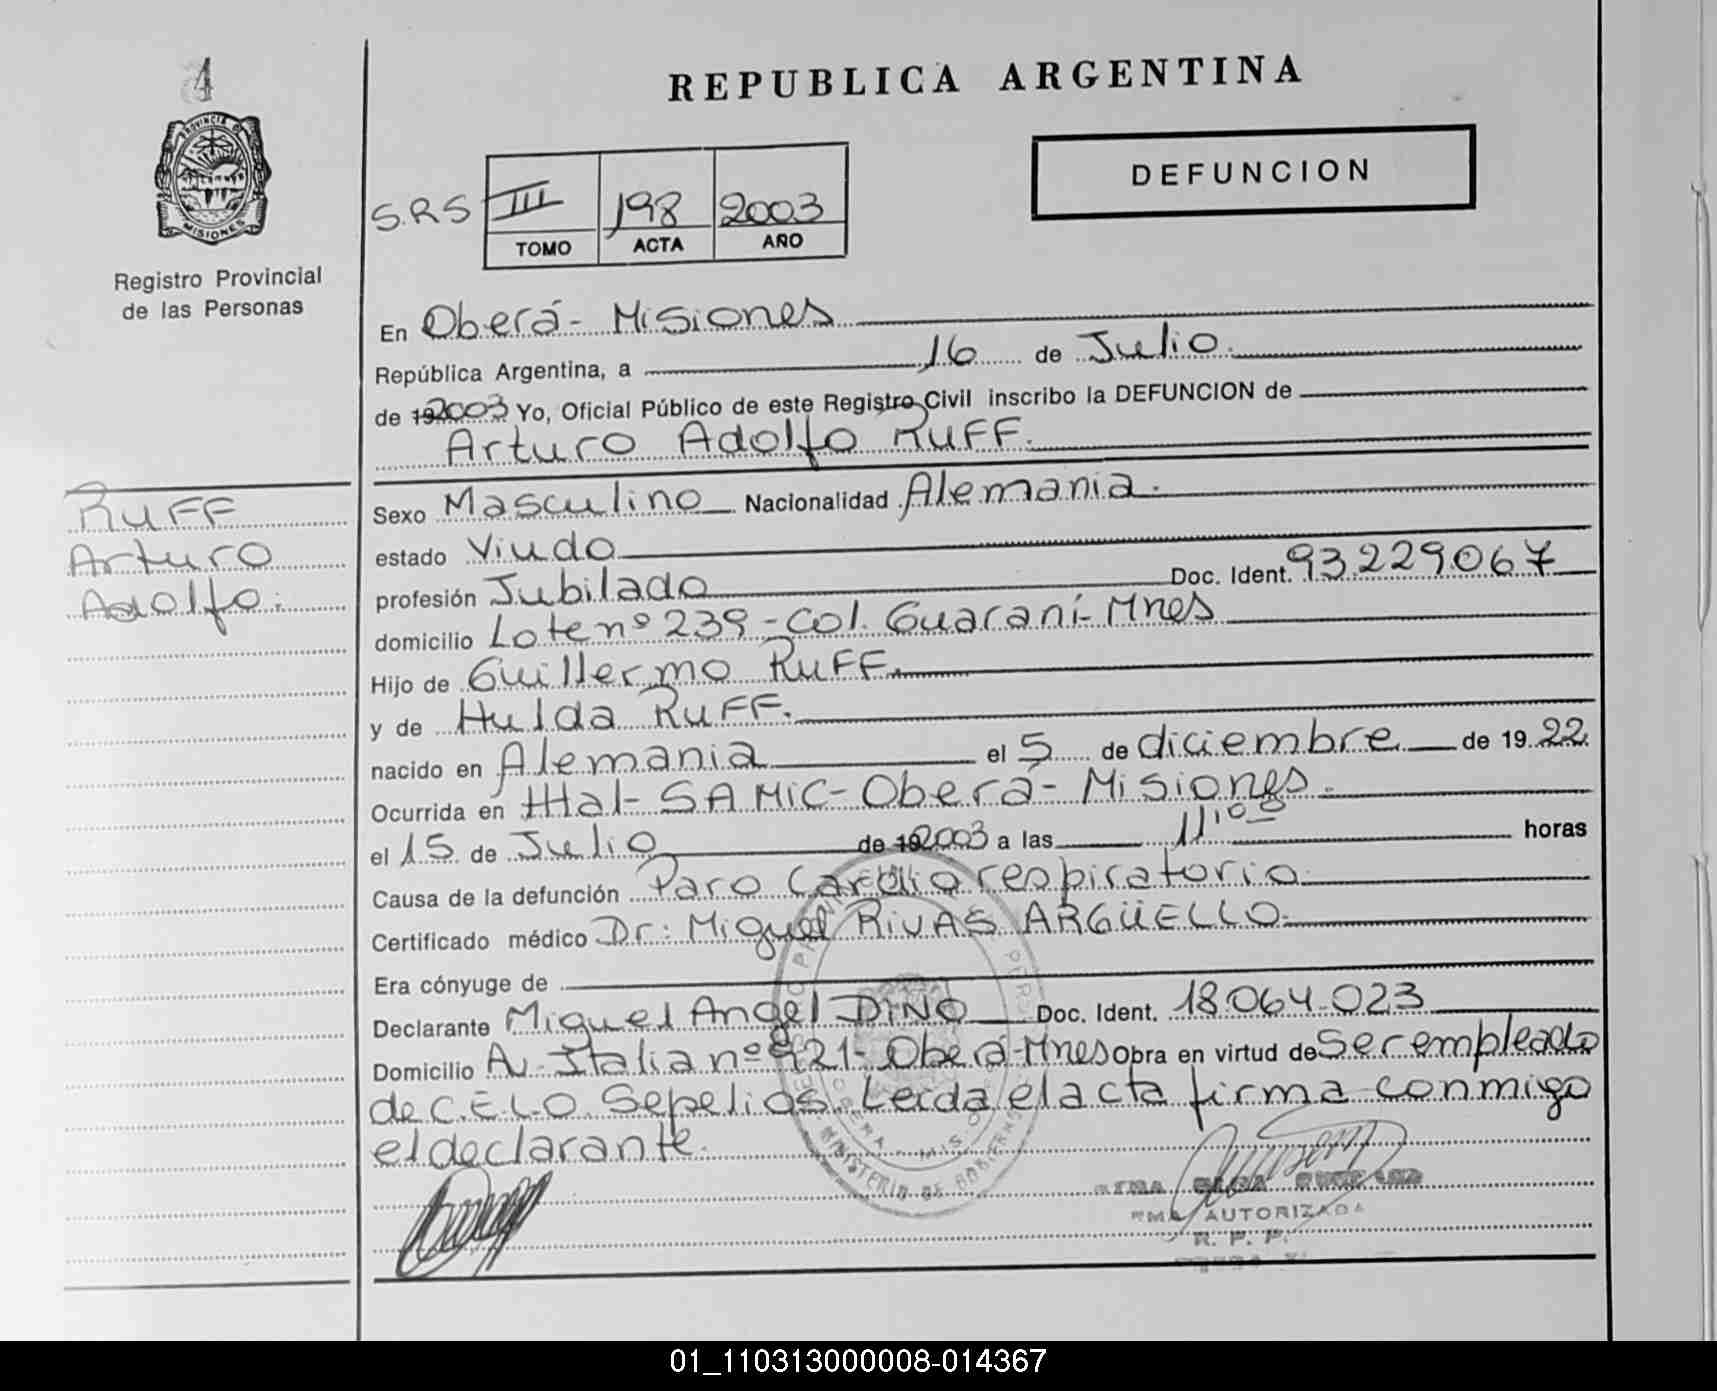 4
REPUBLICA ARGENTINA
PROVINCIA DE
MISIONES
Registro Provincial
de las Personas
S.R.S III 198 2003
TOMO ACTA AÑO
DEFUNCION
En Oberá - Misiones
República Argentina, a 16 de Julio.
de 192003 Yo, Oficial Público de este Registro Civil inscribo la DEFUNCION de
Arturo Adolfo RUFF.
RUFF
Arturo
Adolfo.
Sexo Masculino Nacionalidad Alemania.
estado Viudo
profesión Jubilado Doc. Ident. 93.229067
domicilio Lote nº 239 - Col. Guaraní - Mnes
Hijo de Guillermo RUFF.
y de Hulda RUFF.
nacido en Alemania el 5 de diciembre de 19 22
Ocurrida en Htal - SAMIC - Oberá - Misiones.
el 15 de Julio de 192003 a las 11,00 horas
Causa de la defunción Paro Cardiorespiratorio
Certificado médico Dr: Miguel RIVAS ARGÜELLO.
Era cónyuge de
Declarante Miguel Angel DINO Doc. Ident. 18.064.023
Domicilio Av. Italia nº 421 - Oberá - Mnes Obra en virtud de Ser empleado
de C.E.L.O Sepelios. Leida el acta firma conmigo
el declarante.
MINISTERIO DE GOBIERNO
AUTORIZADA
R. P. P.
01_110313000008-014367